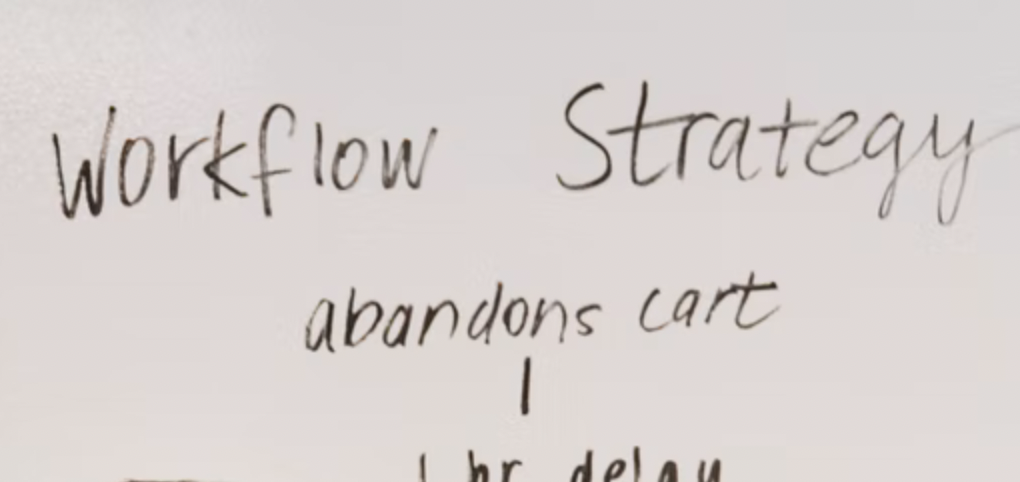 Workflow Strategy
abandons cart
1 hr delay